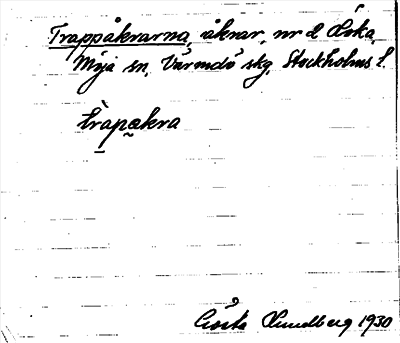 Trappåkrarna, åkrar, nr 2 Löka,
Myja sn, Värmdö skg, Stockholms l.
tràpakra
Gösta Lundberg 1930